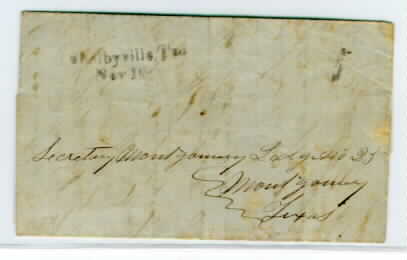 Shelbyville, Tex
Nov 18
5
Secretary Montgomery Lodge No 25
Montgomery
Texas